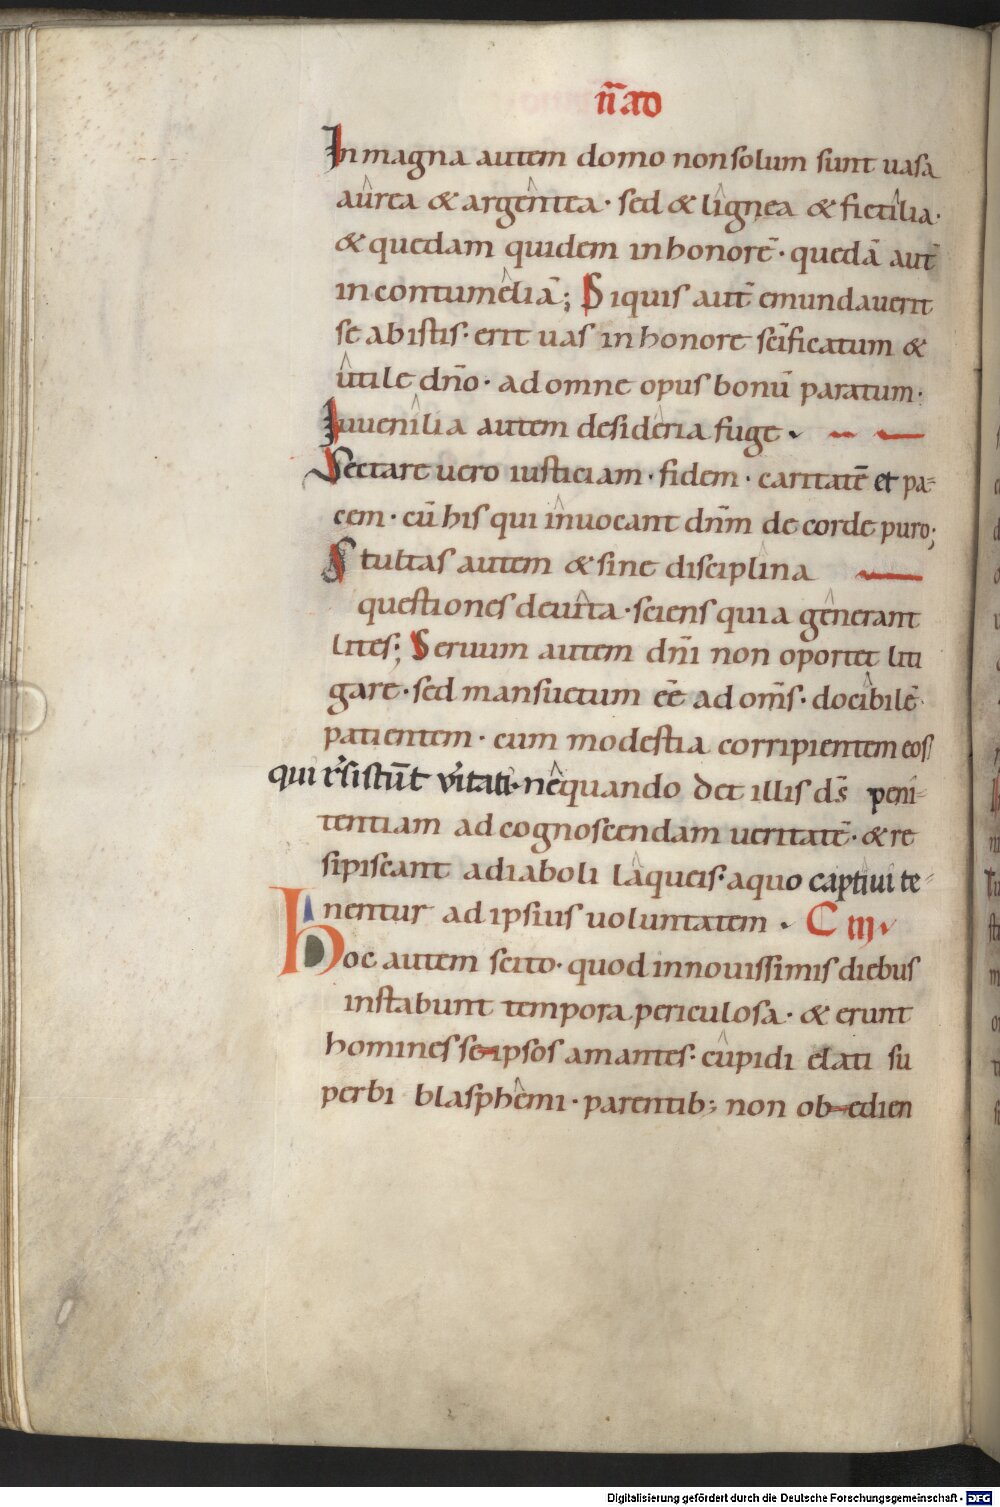 ii̅ ad
In magna autem domo non solum sunt uasa
aurea & argentea · sed & lignea & fictilia ·
& quedam quidem in honore̅ · queda̅ aut̅
in contumelia̅; Siquis aut̅ emundauerit
se ab istis · erit uas in honore sc̅ificatum &
utile dn̅o · ad omne opus bonu̅ paratum ·
Iuuenilia autem desideria fuge ·
Sectare uero iusticiam · fidem · caritate̅ et pa-
cem · cu̅ his qui inuocant dn̅m de corde puro;
Stultas autem & sine disciplina
questiones deuita · sciens quia generant
lites; Seruum autem dn̅i non oportet liti
gare · sed mansuetum ee̅ ad om̅s · docibile̅ ·
patientem · cum modestia corripientem eos
qui r̾sistu̅t v̾itati · nequando det illis ds̅ peni-
tentiam ad cognoscendam ueritate̅ · & re
sipiscant a diaboli laqueis · a quo captiui te-
nentur ad ipsius uoluntatem · C III
Hoc autem scito · quod in nouissimis diebus
instabunt tempora periculosa · & erunt
homines se ipsos amantes · cupidi elati su
perbi blasphemi · parentib; non obedien
Digitalisierung gefördert durch die Deutsche Forschungsgemeinschaft - DFG